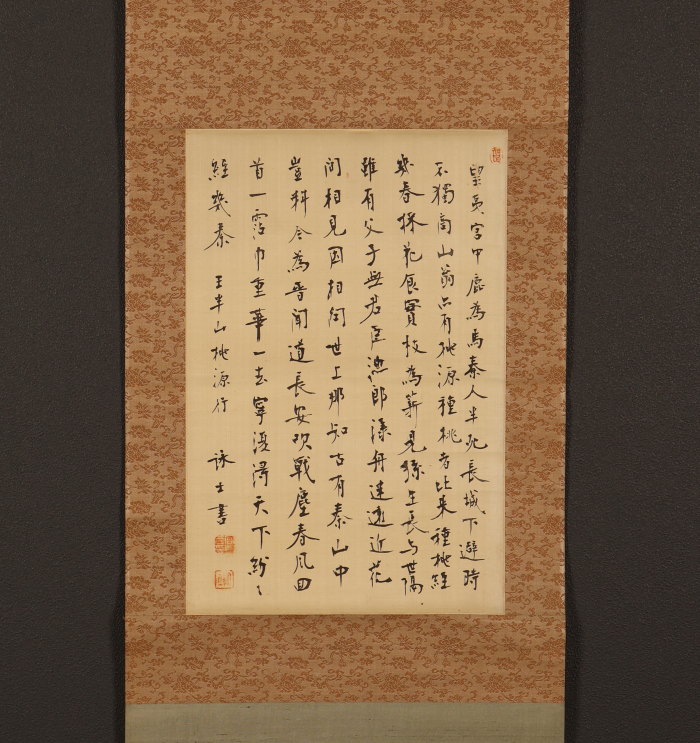 望夷宮中鹿為馬秦人半死長城下避時
不獨商山翁亦有桃源種桃者比来種桃經
幾春採花食實枝為薪兒孫生長与世隔
雖有父子無君臣漁郎漾舟迷遠近花
間相見因相問世上那知古有秦山中
豈料今為晉聞道長安吹戰塵春風回
首一霑巾重華一去寧復得天下紛〻
經幾秦 王半山桃源行 詠士書